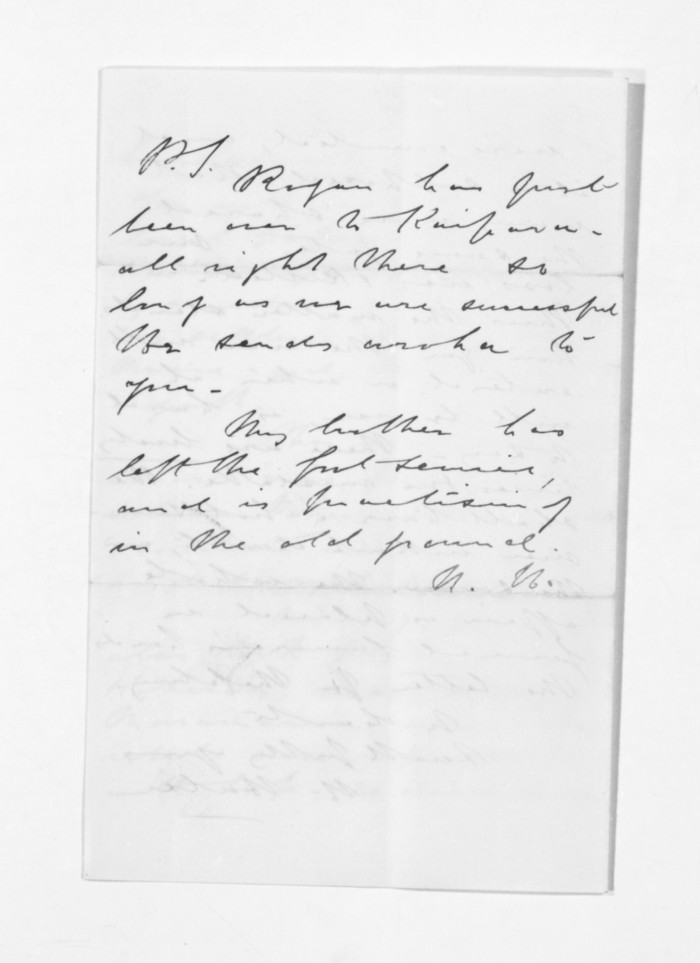 P.S.
Rogan has just
been over to Kaipara -
all right there so
long as we are successful
He sends aroha to
you -
My brother has
left the Govt service,
and is practising
in the old ground.